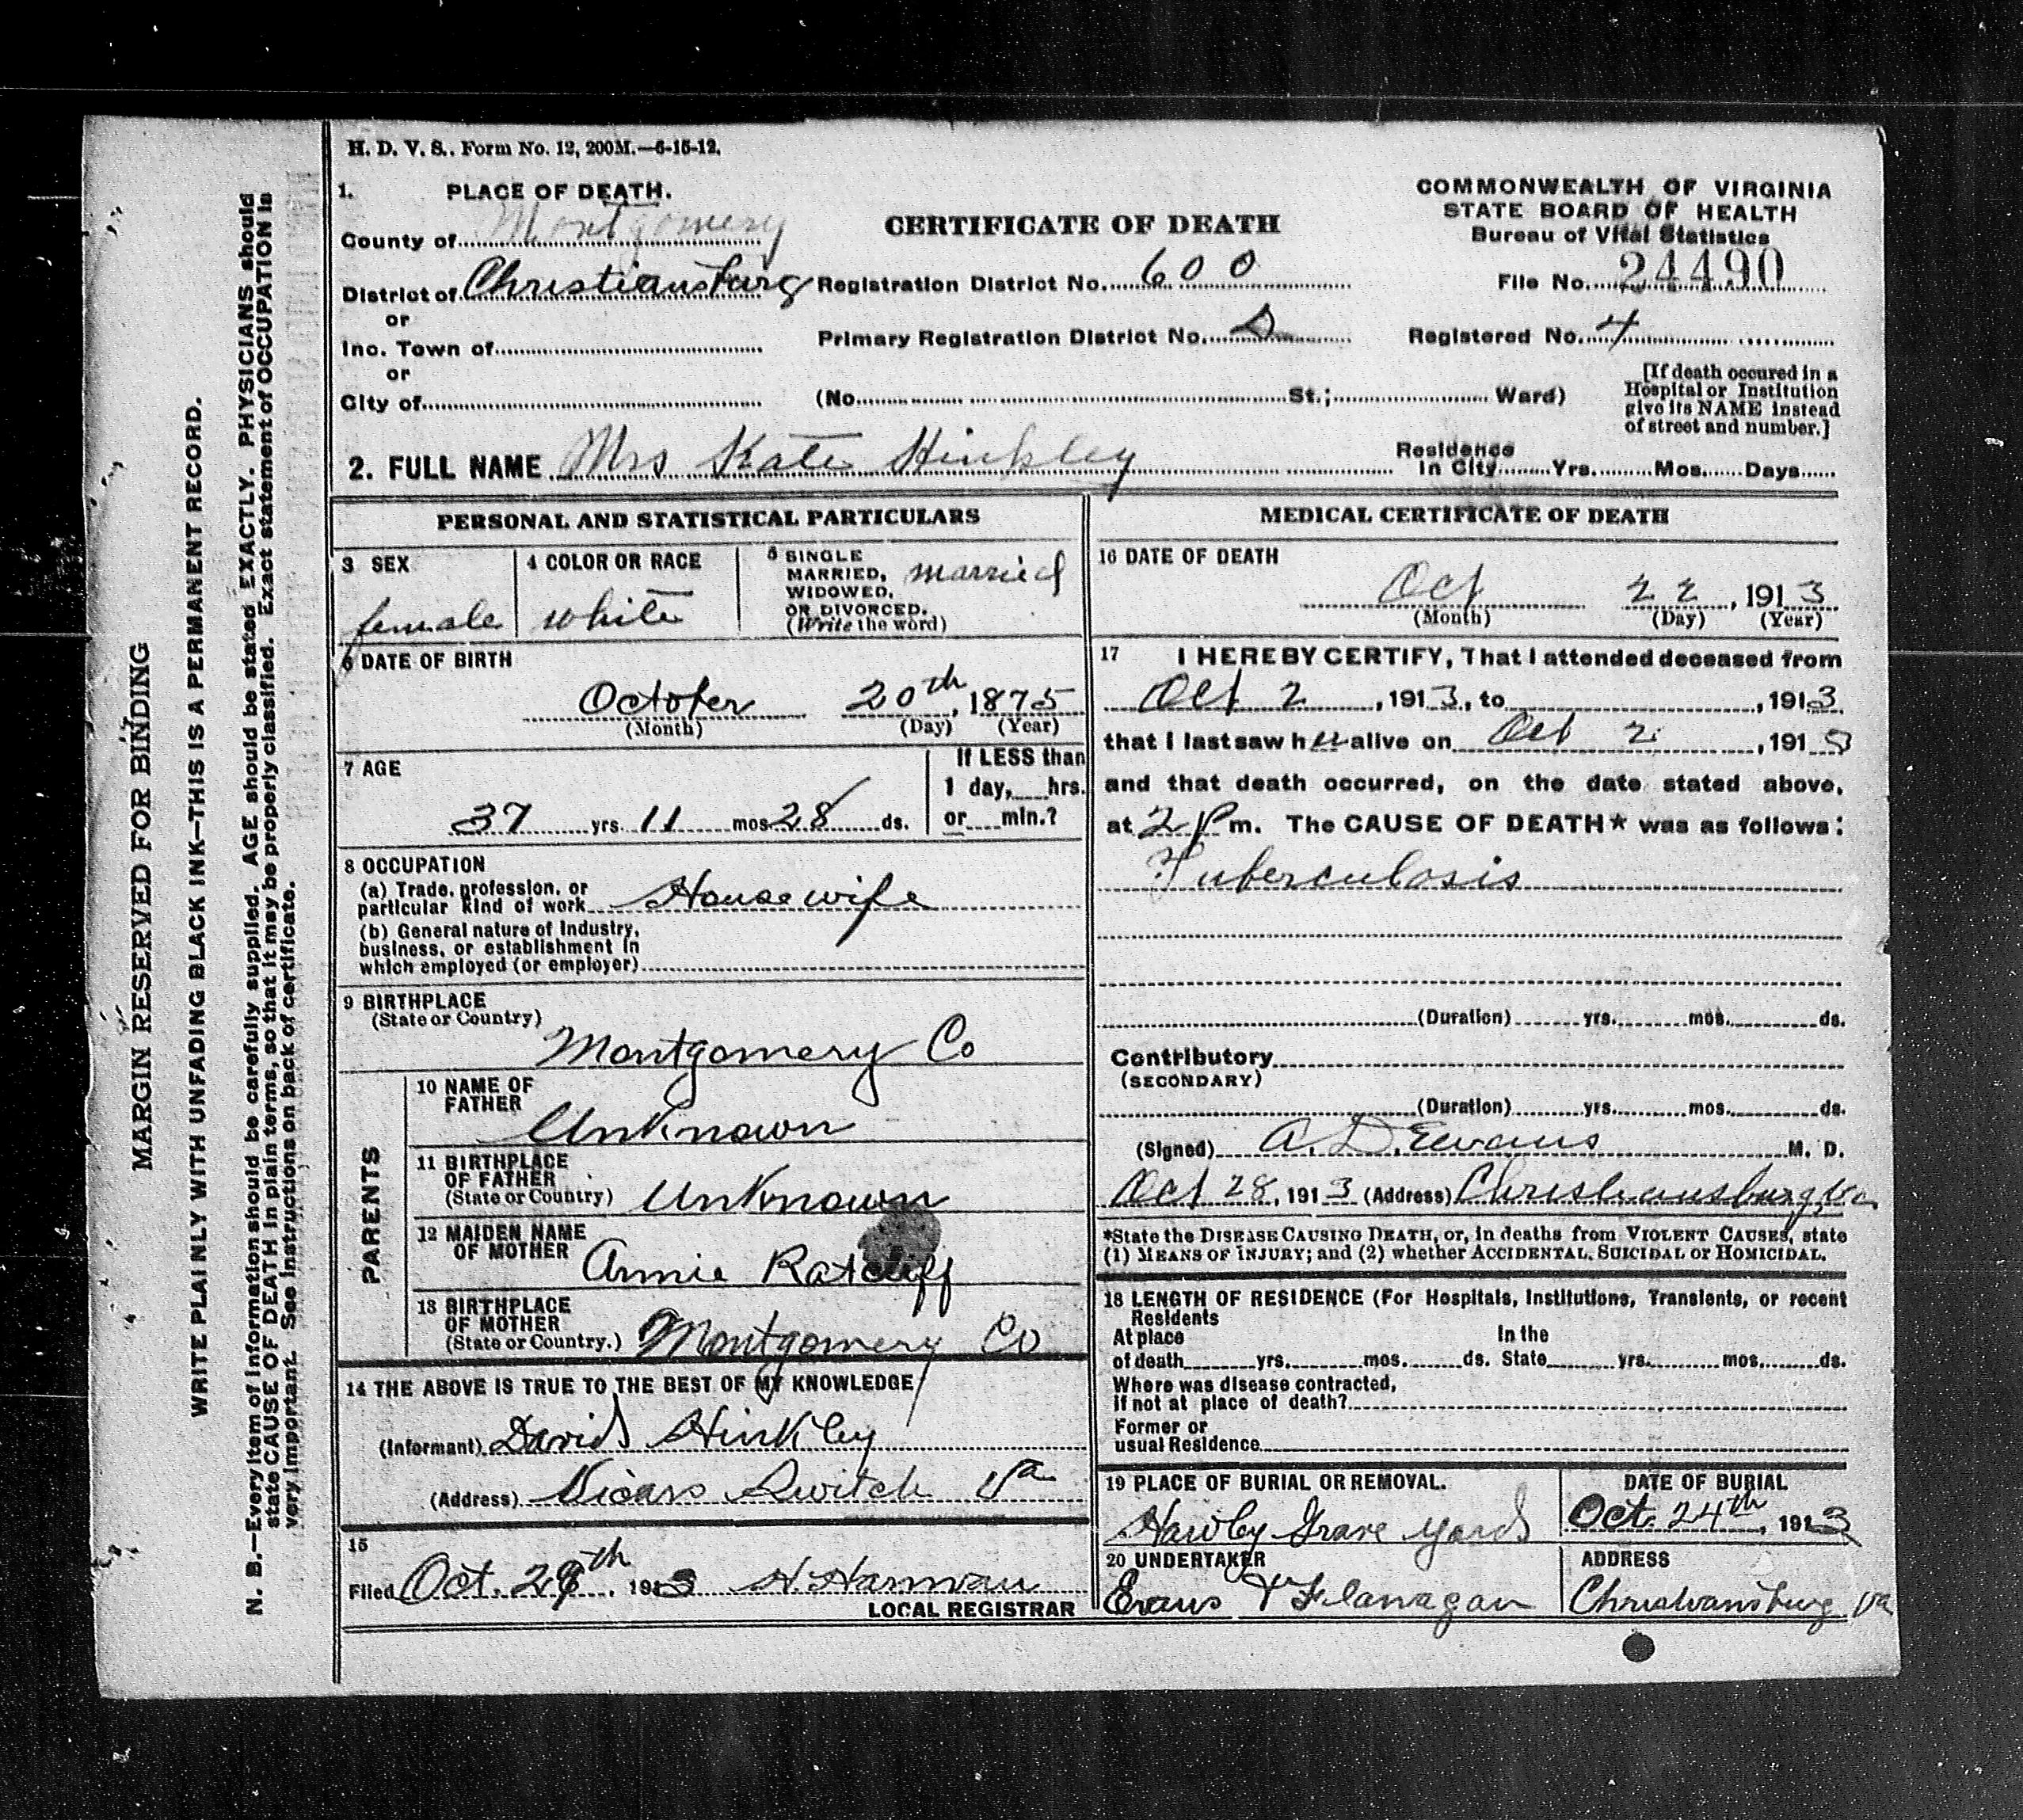 H. D. V. S.. Form No. 12, 200M.—6-15-12.
1. PLACE OF DEATH.
County of Montgomery
District of Christiansburg
or
Inc. Town of
or
City of
CERTIFICATE OF DEATH
Registration District No. 600
Primary Registration District No. D
(No. St.; Ward)
COMMONWEALTH OF VIRGINIA
STATE BOARD OF HEALTH
Bureau of Vital Statistics
File No. 24490
Registered No. 4
[If death occured in a
Hospital or Institution
give its NAME instead
of street and number.]
2. FULL NAME Mrs Kate Hinkley
Residence
In City Yrs. Mos. Days
PERSONAL AND STATISTICAL PARTICULARS
3 SEX
female
4 COLOR OR RACE
white
5 SINGLE
MARRIED, married
WIDOWED,
OR DIVORCED.
(Write the word)
6 DATE OF BIRTH
October 20th, 1875
(Month) (Day) (Year)
7 AGE
37 yrs. 11 mos 28 ds.
If LESS than
1 day, hrs.
or min.?
8 OCCUPATION
(a) Trade, profession, or
particular kind of work House wife
(b) General nature of Industry,
business, or establishment in
which employed (or employer)
9 BIRTHPLACE
(State or Country)
Montgomery Co
PARENTS
10 NAME OF
FATHER
Unknown
11 BIRTHPLACE
OF FATHER
(State or Country) Unknown
12 MAIDEN NAME
OF MOTHER Annie Ratcliff
13 BIRTHPLACE
OF MOTHER
(State or Country.) Montgomery Co
14 THE ABOVE IS TRUE TO THE BEST OF MY KNOWLEDGE
(Informant) David Hinkley
(Address) Vicars Switch Va
15
Filed Oct. 29th, 1913 H. Harman
LOCAL REGISTRAR
MEDICAL CERTIFICATE OF DEATH
16 DATE OF DEATH
Oct 22, 1913
(Month) (Day) (Year)
17 I HEREBY CERTIFY, That I attended deceased from
Oct 2, 1913, to , 1913
that I last saw her alive on Oct 2, 1913
and that death occurred, on the date stated above,
at 2 P m. The CAUSE OF DEATH* was as follows:
Tuberculosis
(Duration) yrs. mos. ds.
Contributory
(SECONDARY)
(Duration) yrs. mos. ds.
(Signed) A. D. Evans M. D.
Oct 28, 1913 (Address) Christiansburg, Va
*State the DISEASE CAUSING DEATH, or, in deaths from VIOLENT CAUSES, state
(1) MEANS OF INJURY; and (2) whether ACCIDENTAL, SUICIDAL or HOMICIDAL.
18 LENGTH OF RESIDENCE (For Hospitals, Institutions, Transients, or recent
Residents
At place In the
of death yrs. mos. ds. State yrs. mos. ds.
Where was disease contracted,
if not at place of death?
Former or
usual Residence
19 PLACE OF BURIAL OR REMOVAL.
Hawley Grave yard
DATE OF BURIAL
Oct. 24th, 1913
20 UNDERTAKER
Evans & Flanagan
ADDRESS
Christiansburg Va
MARGIN RESERVED FOR BINDING
WRITE PLAINLY WITH UNFADING BLACK INK—THIS IS A PERMANENT RECORD.
N. B.—Every item of information should be carefully supplied. AGE should be stated EXACTLY. PHYSICIANS should
state CAUSE OF DEATH in plain terms, so that it may be properly classified. Exact statement of OCCUPATION is
very important. See instructions on back of certificate.